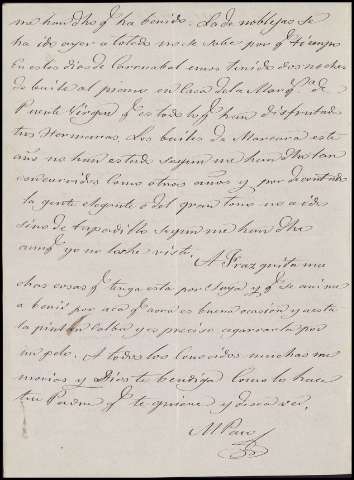 me han dho q.e ha benido. La de noblejas se
ha ido ayer a toledo no se sabe por q.e tiempo
En estos dias de Carnabal emos tenido dos noches
de baile al piano en casa de la Marq.sa de
Puente Virgen q.e es todo lo q.e han disfrutado
tus Hermanas. Los bailes de Mascara este
año no han estado segun me han dho tan
concurridos como otros años y por de contado
la gente elegante o del gran tono no a ido
sino de trapondillo segun me han dho
aunq.e yo no los he visto.
A Frazquita mu
chas cosas q.e tenga esta por Suya y q.e se anime
a benir por aca q.e aora es buena ocasion y a esta
la pintan calba y es preciso agarrarla por
un pelo. A todos los Conocidos muchas me
morias y Dios te bendiga como lo hace
tu Padre q.e te quiere y desea ver.
M Paro